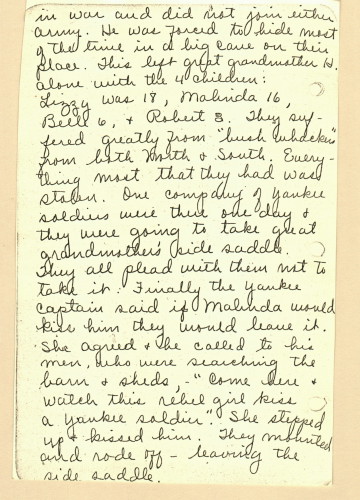 in war and did not join either
army. He was forced to hide most
of the time in a big cave on their
place. This left great grandmother H.
alone with the 4 children:
Lizzy was 18, Malinda 16,
Belle 6, & Robert 3. They suf-
fered greatly from "bush whackers"
from both North & South. Every-
thing most that they had was
stolen. One company of Yankee
soldiers were there one day &
they were going to take great
grandmother's side saddle.
They all plead with them not to
take it. Finally the Yankee
captain said if Malinda would
kiss him they would leave it.
She agreed & he called to his
men, who were searching the
barn & sheds, - "Come here &
watch this rebel girl kiss
a Yankee soldier". She stepped
up & kissed him. They mounted
and rode off - leaving the
side saddle.